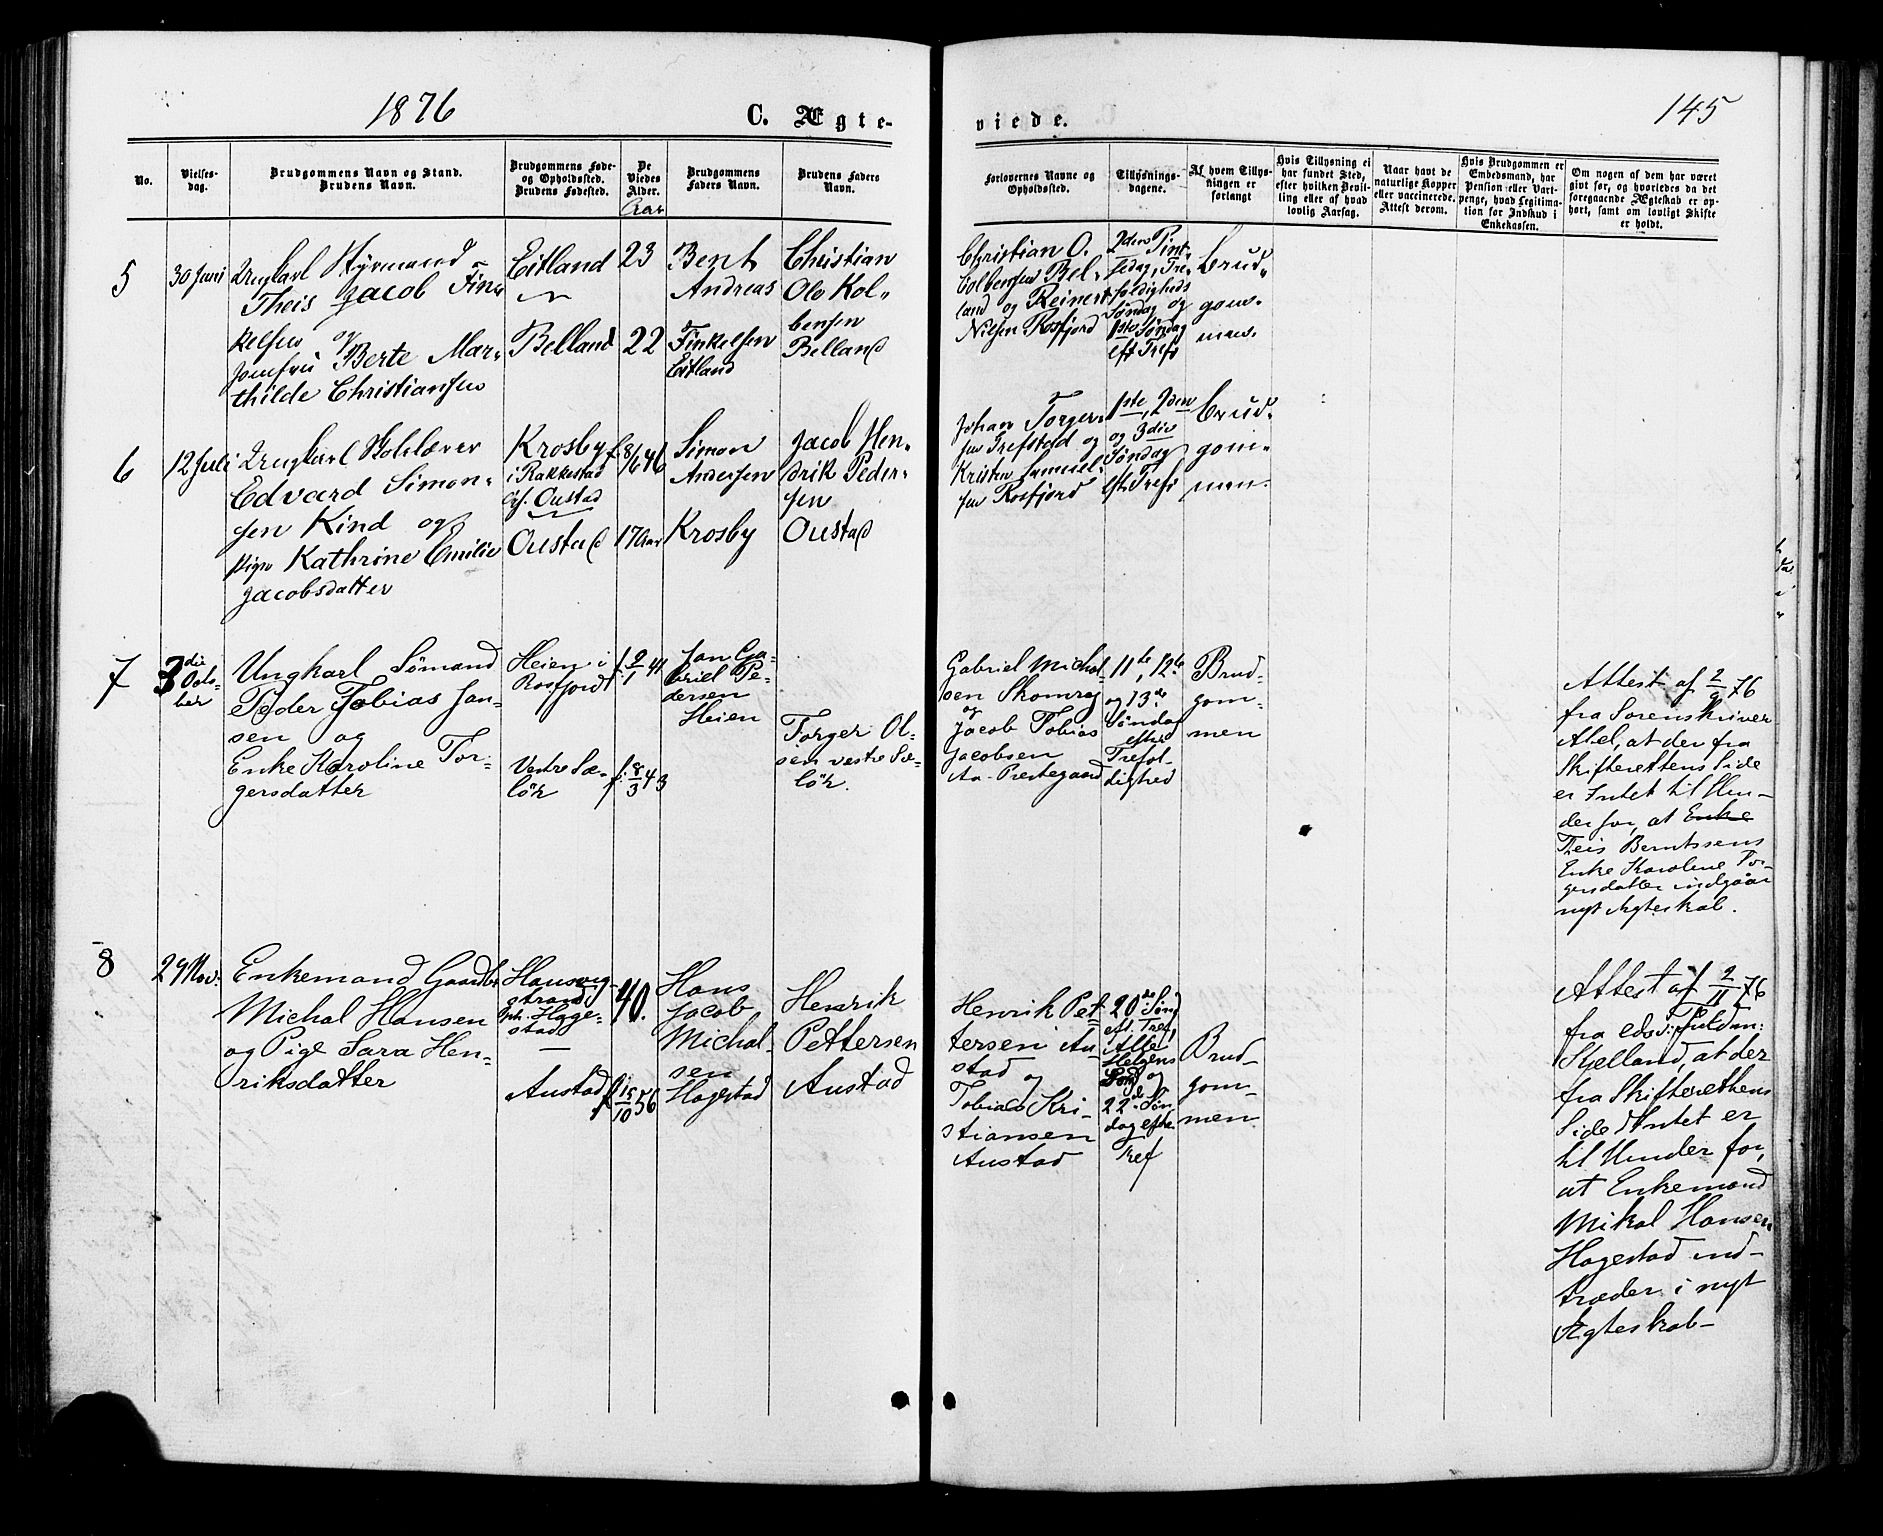 1876
C. Ægte-
viede.
145
No.
Vielses-
dag.
Brudgommens Navn og Stand.
Brudens Navn.
Brudgommens Føde-
og Opholdssted.
Brudens Fødested.
De
Viedes
Alder.
Aar
Brudgommens
Faders Navn.
Brudens Faders
Navn.
Forlovernes Navne og
Opholdssted.
Tillysnings-
dagene.
Af hvem Tillys-
ningen er
forlangt
Hvis Tillysning ei
har fundet Sted,
efter hvilken Bevil-
ling eller af hvad
lovlig Aarsag.
Naar havt de
naturlige Kopper
eller vaccinerede.
Attest derom.
Hvis Brudgommen er
Embedsmand, har
Pension eller Vart-
penge, hvad Legitima-
tion for Indskud i
Enkekassen.
Om nogen af dem har været
gift før, og hvorledes da det
foregaaende Ægteskab er op-
hørt, samt om lovligt Skifte
er holdt.
5
30 Juni
Ungkarl Styrmand
Theis Jacob Fin-
kelsen og
Jomfru Berte Mar-
thilde Christiansen
Eitland
Belland
23
22
Bent
Andreas
Finkelsen
Eitland
Christian
Olo Kol-
bensen
Belland
Christian O.
Colbensen Bel-
land og Reinert
Nilsen Rosfjord
2den Pint-
sedag, Tre-
foldigheds
Søndag og
1ste Søndag
eft Tref
Brud-
gom-
men.
6
12 Juli
Ungkarl Skolelærer
Edvard Simon-
sen Kind og
Pige Kathrine Emilie
Jacobsdatter
Krosby
i Rakkestad
Oustad
Oustad
f. 8/6 46
17 Aar
Simon
Andersen
Krosby
Jacob Hen-
drik Peder-
sen
Oustad
Johan Torger-
sen Trefstad og
Kristen Samuel-
sen Rosfjord
1ste, 2den
og 3die
Søndag
eft. Tref
Brud-
gom-
men.
7
3die
Octo-
ber
Ungkarl Sømand
Peder Tobias Jan-
sen og
Enke Karoline Tor-
gersdatter
Heien i
Rosfjord
Vestre Sæ-
lør
f. 2/1 41
f. 8/3 43
Jan Ga-
briel Pe-
dersen
Heien
Torger Ol-
sen vestre Sæ-
lør.
Gabriel Michal-
sen Skomrag
og
Jacob Tobias
Jacobsen
Aa-Prestegaard
11te, 12te
og 13de
Søndag
efter
Trefol-
dighed
Brud-
gom-
men
Attest af 2/9 76
fra Sorenskriver
Abel, at der fra
Skifterettens Side
er Intet til Hin-
der for, at Enke
Teis Berntssens
Enke Karolene Tor-
gersdatter indgaar
nyt Ægteskab.
8
29 Nov.
Enkemand Gaardbr.
Michal Hansen
og Pige Sara Hen-
riksdatter
Hausvig-
strand,
Hage-
stad
Austad
40.
f. 15/10 56
Hans
Jacob
Michal-
sen
Hagestad
Henrik
Pettersen
Austad
Henrik Pet-
tersen Au-
stad og
Tobias Kri-
stiansen
Austad
20de Sønd
eft. Tref,
Alle
Helgens
Søndg og
22de Søn-
dag efter
Tref
Brud-
gom-
men
Attest af 2/11 76
fra edsv. Fuldm:
Kjelland, at der
fra Skifterettens
Side Intet er
til Hinder for,
at Enkemand
Mikal Hansen
Hagestad ind-
træder i nyt
Ægteskab-